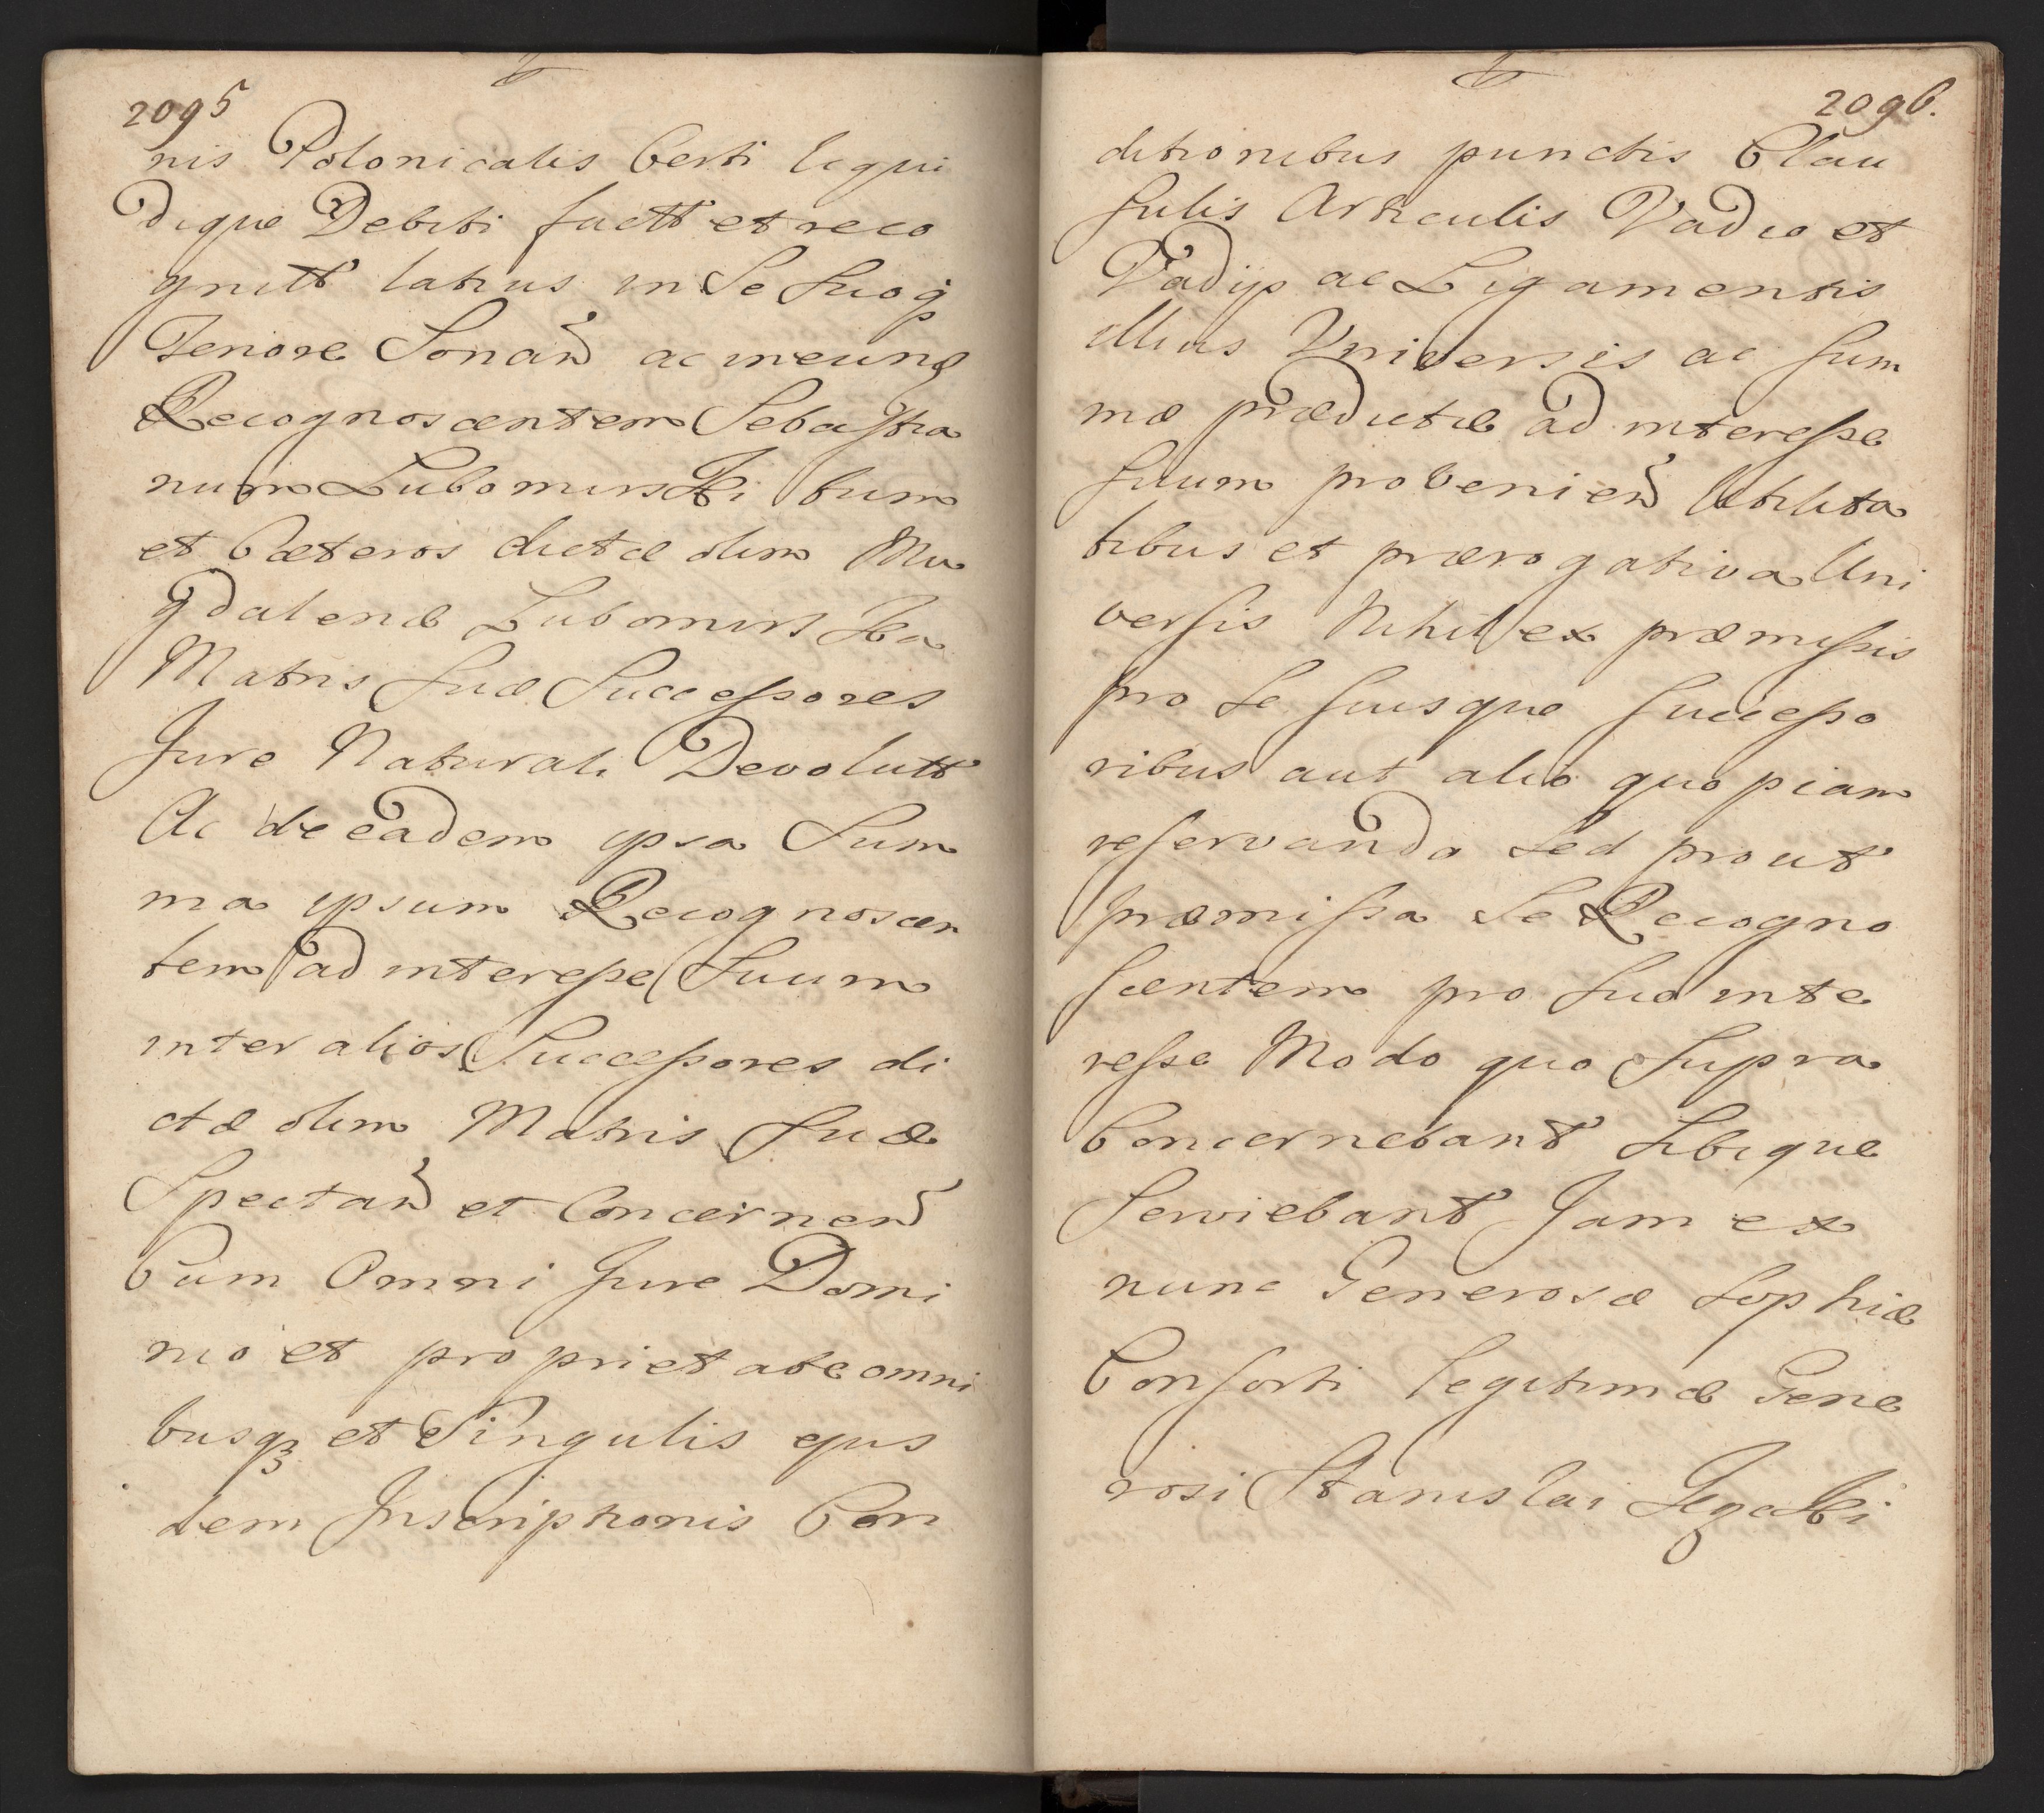 2095
nis Polonicalis Certi liqui
dique Debiti factt et reco
gnitt latius in Se Suoq̃
Tenore Sonań ac in eund
Recognoscentem Sebastia
num Lubomirski tum
et Cæteros dictæ olim Ma
gdalenæ Lubomirska
Matris Suæ Successores
Jure Naturali Devolutt
Ac de eadem ipsa Sum
ma ipsum Recognoscen
tem ad interesse Suum
inter alios Successores di
ctæ olim Matris Suæ
Spectań et Concerneń
Cum Omni Jure Domi
nio et proprietate omni
busq3 et Singulis ejus
dem Inscriptionis Con
2096.
ditionibus punctis Clau
sulis Articulis Vadio et
Vadijs ac Ligamentis
illius Vniversis ac Sum
mæ prædictæ ad interesse
Suum provenień Utilita
tibus et prærogativa Uni
versis Nihil ex præmissis
pro Se suisque successo
ribus aut alio quopiam
reservando sed prout
præmissa Se Recogno
scentem pro suo inte
resse Modo quo Supra
Concernebant Sibique
Serviebant Jam ex
nunc Generosæ Sophiæ
Consorti legitimæ Gene
rosi Stanislai